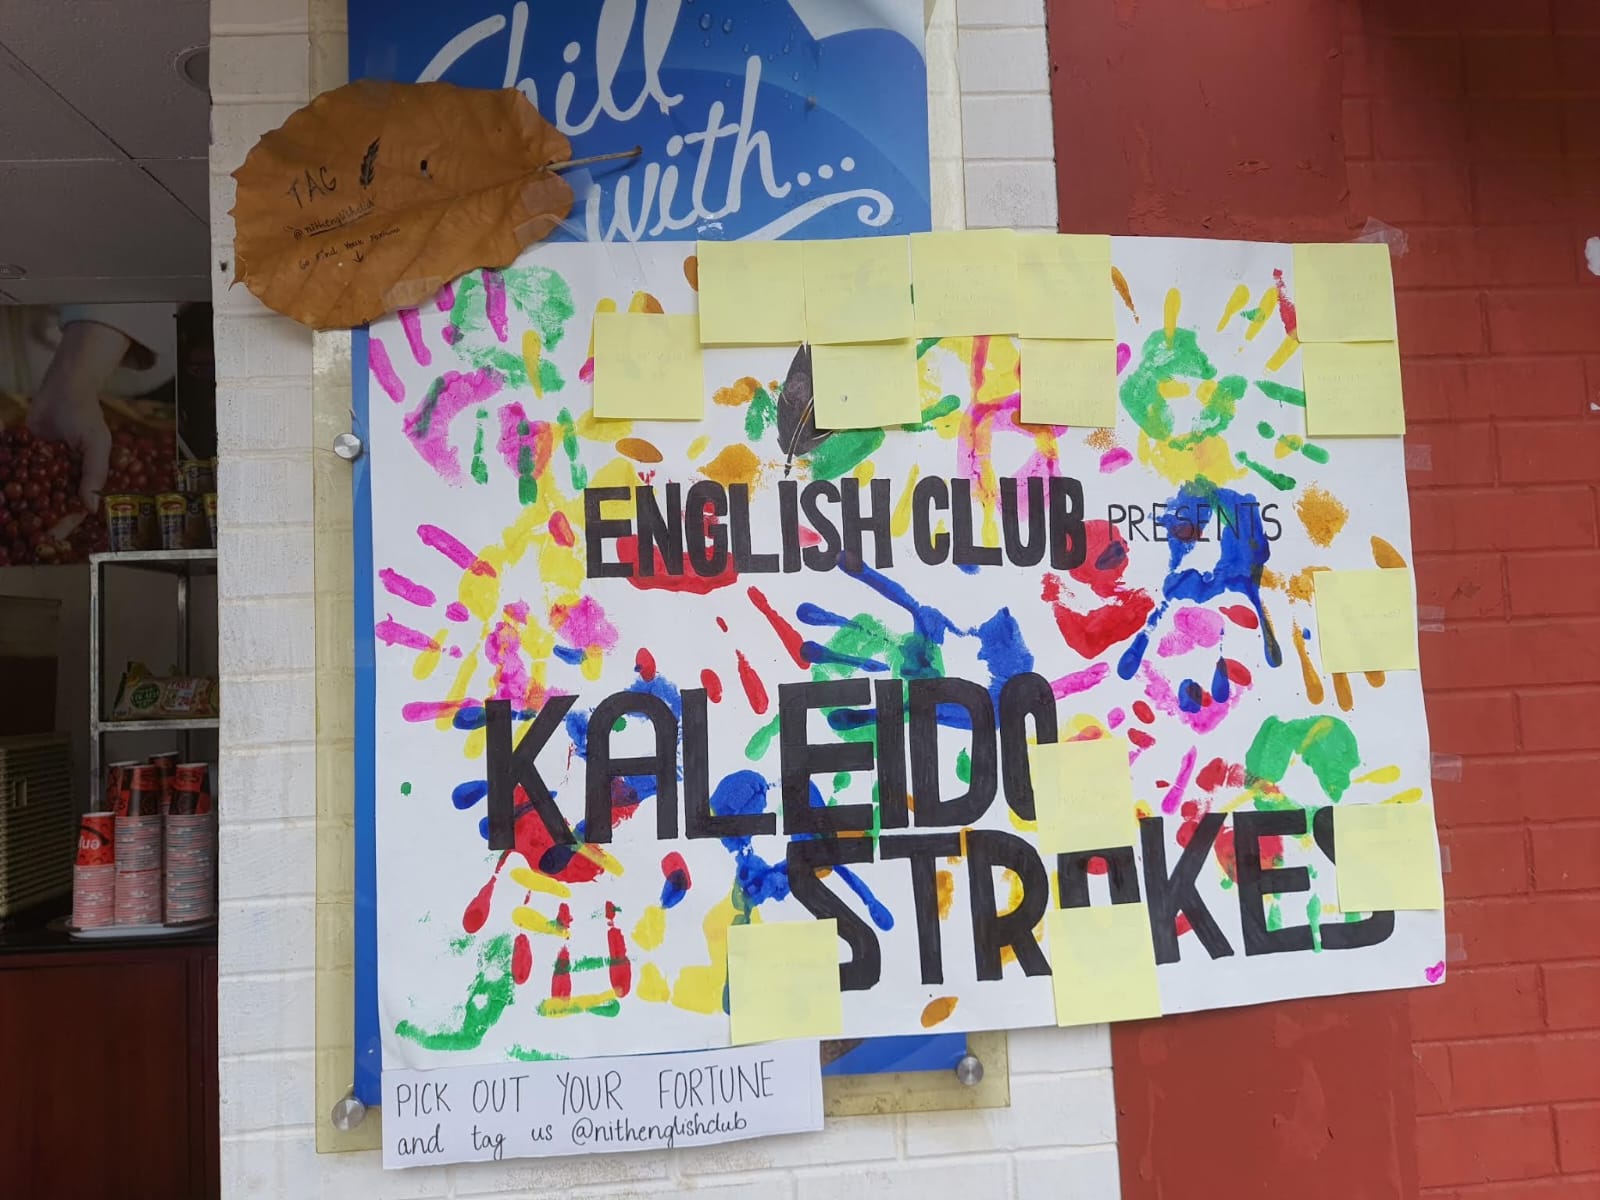 Chill
with...
TAG
@nithenglishclub
Go find your fortune
ENGLISH CLUB PRESENTS
KALEIDO
STROKES
PICK OUT YOUR FORTUNE
and tag us @nithenglishclub